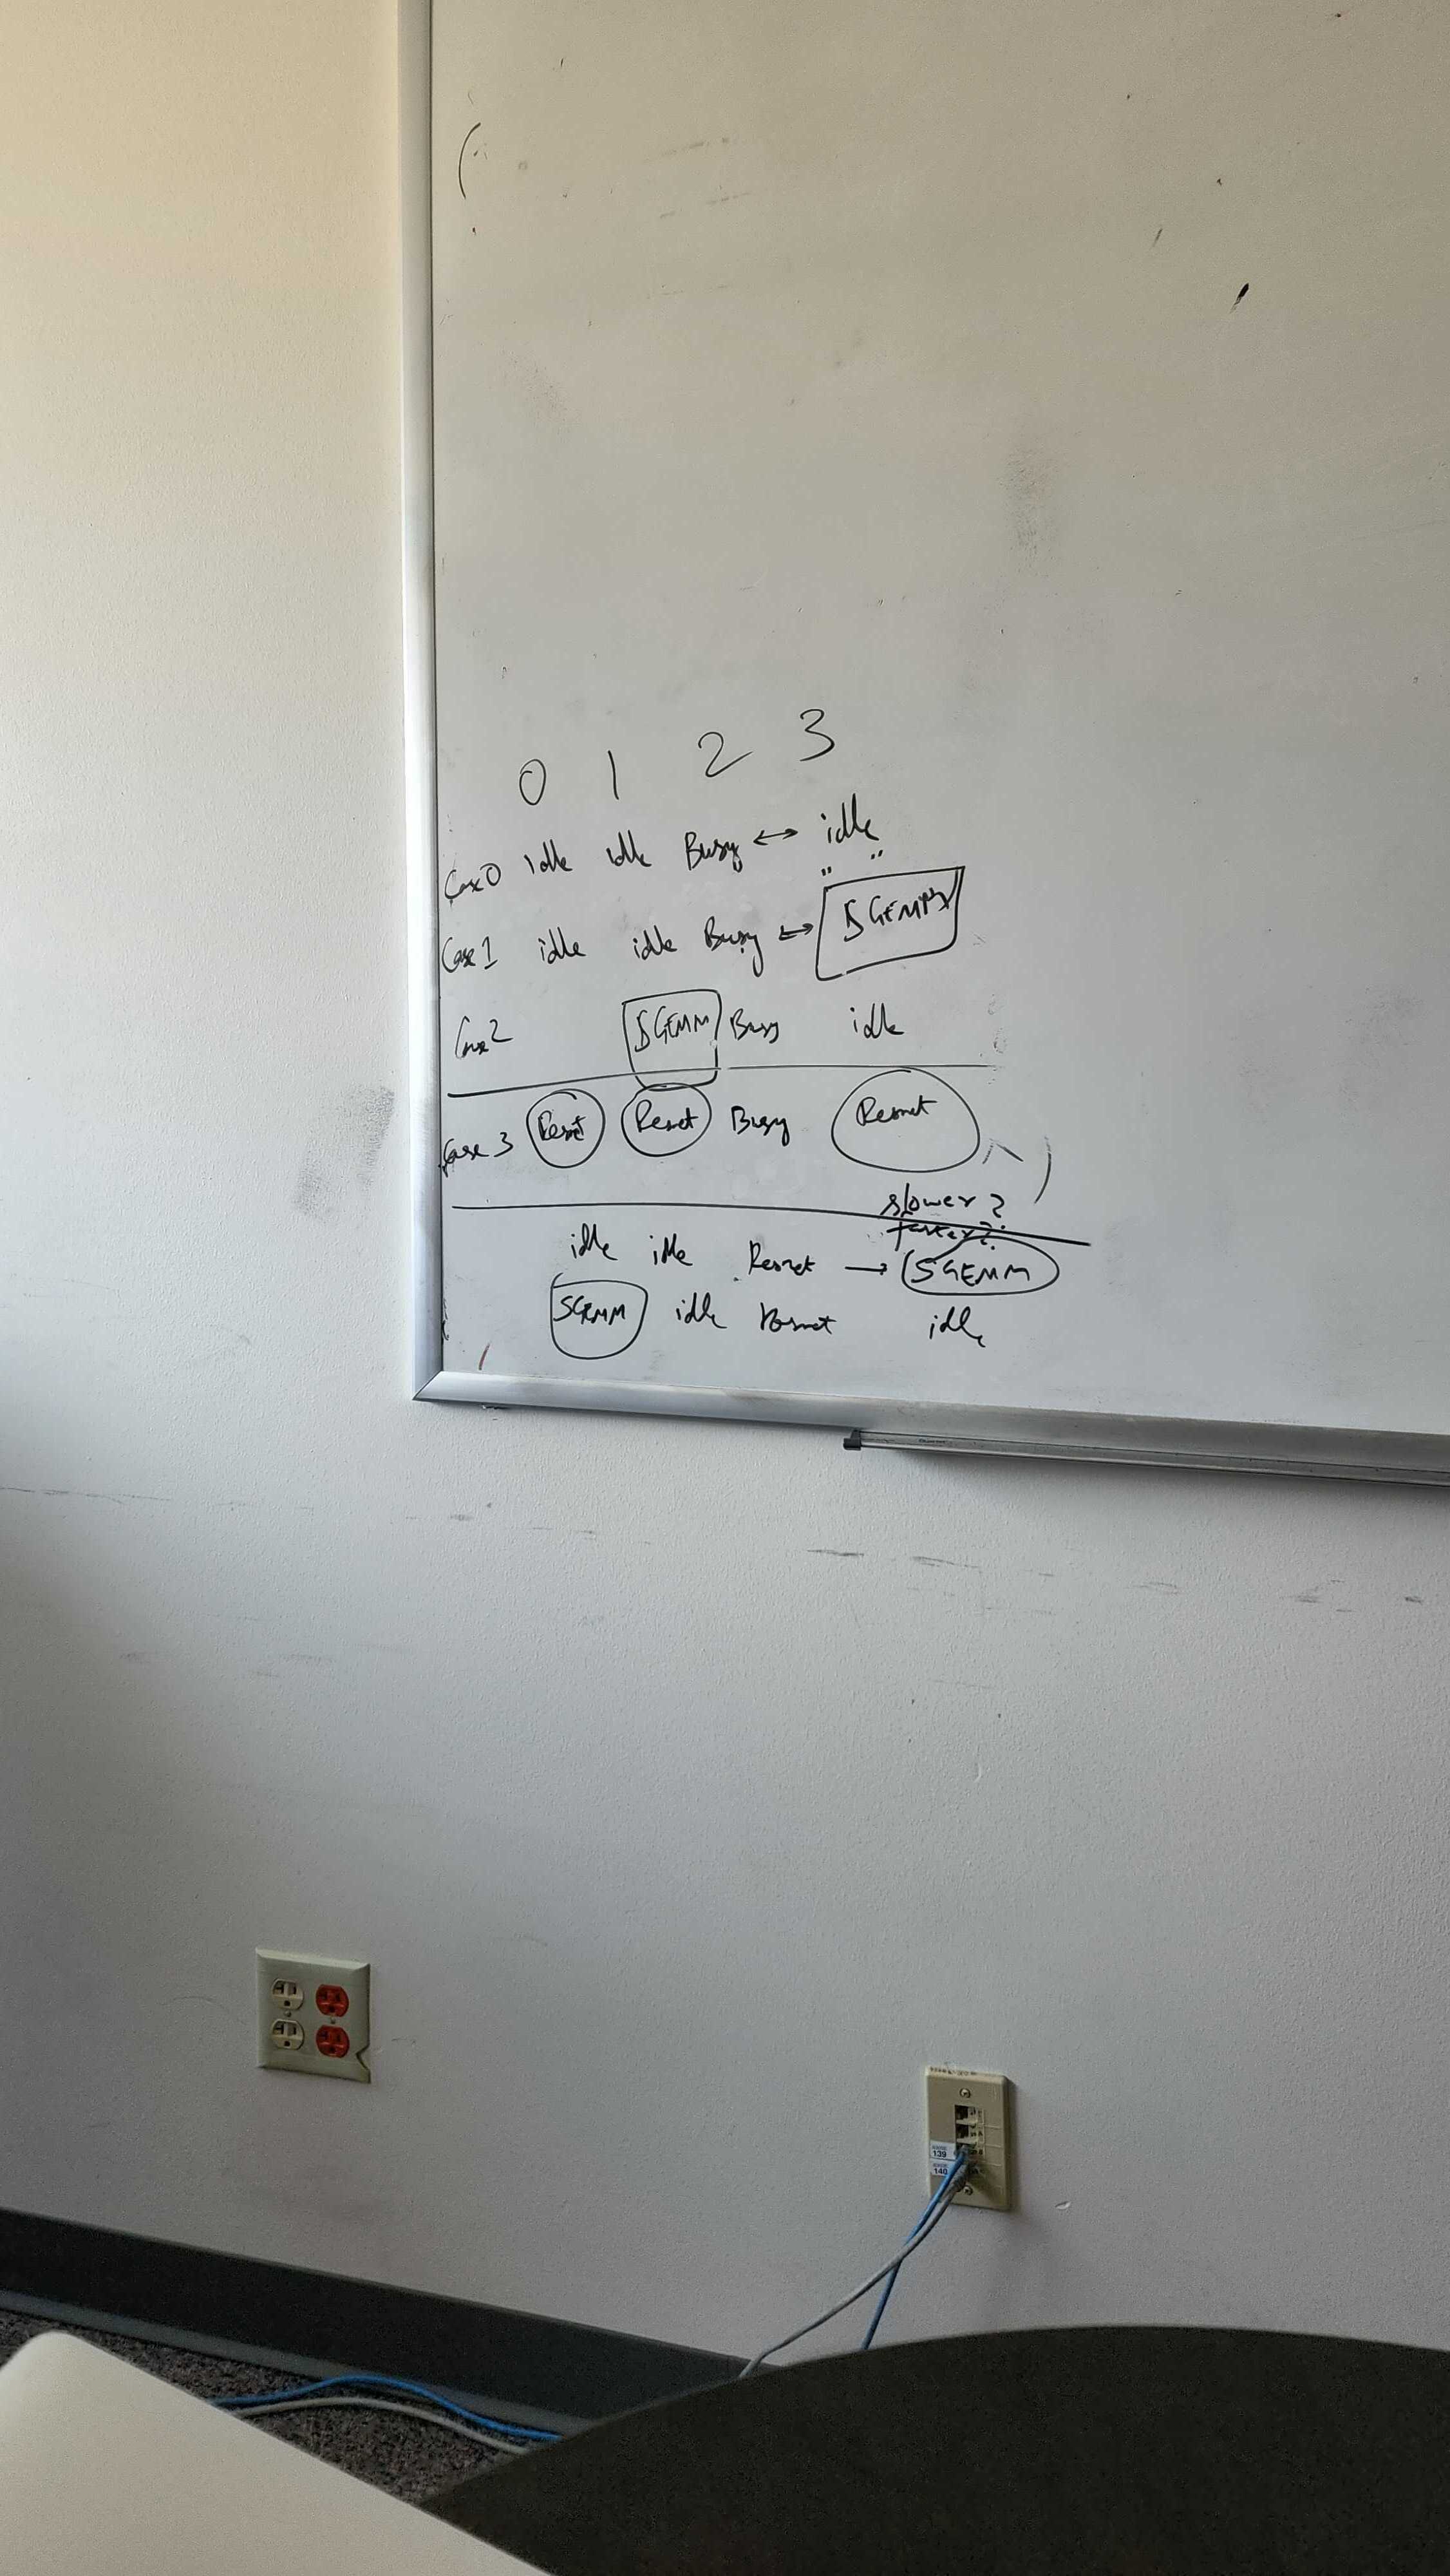 0 1 2 3
Case 0 idle idle Busy ↔ idle
" "
Case 1 idle idle Busy ↔ SGEMM
Case 2 SGEMM Busy idle
Case 3 Resnet Resnet Busy Resnet
slower?
faster?
idle idle Resnet → SGEMM
SGEMM idle Resnet idle
139
140